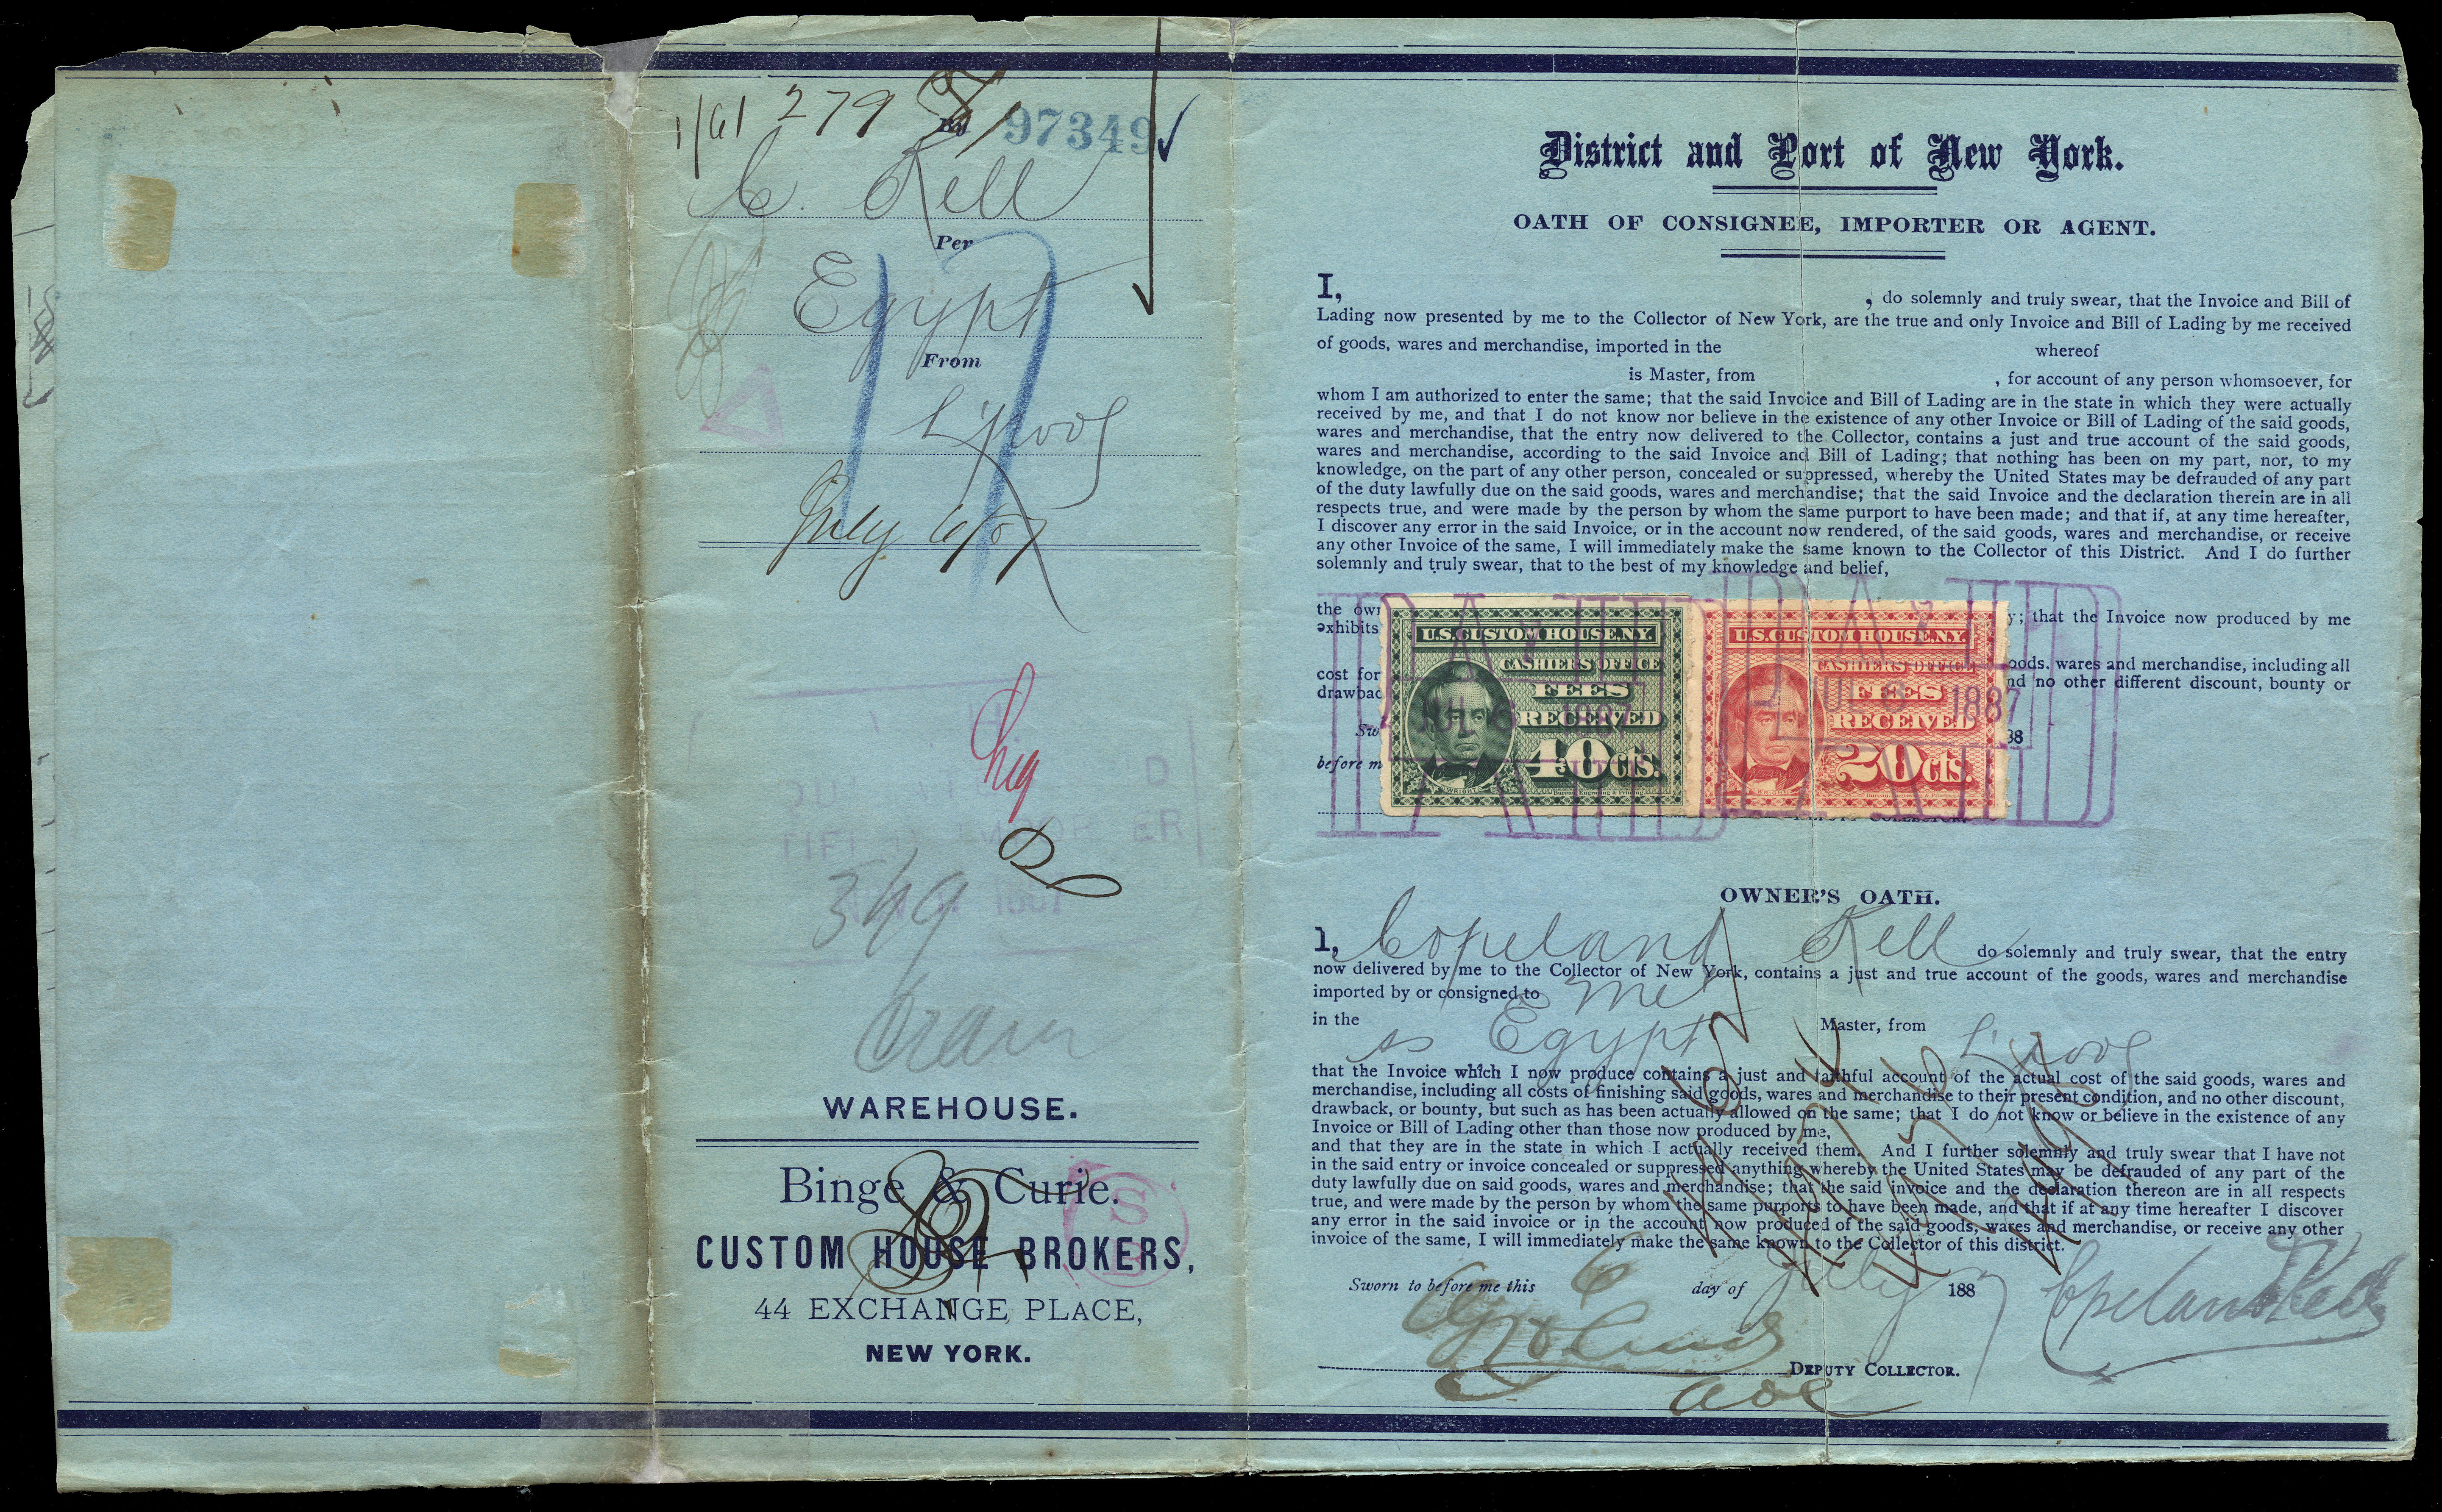 279
By 97349
C. Kell
Per
Egypt
From
L'pool
July 6/87
17
349
WAREHOUSE.
Binge & Curie.
CUSTOM HOUSE BROKERS,
44 EXCHANGE PLACE,
NEW YORK.
District and Port of New York.
OATH OF CONSIGNEE, IMPORTER OR AGENT.
I, , do solemnly and truly swear, that the Invoice and Bill of
Lading now presented by me to the Collector of New York, are the true and only Invoice and Bill of Lading by me received
of goods, wares and merchandise, imported in the whereof
is Master, from , for account of any person whomsoever, for
whom I am authorized to enter the same; that the said Invoice and Bill of Lading are in the state in which they were actually
received by me, and that I do not know nor believe in the existence of any other Invoice or Bill of Lading of the said goods,
wares and merchandise, that the entry now delivered to the Collector, contains a just and true account of the said goods,
wares and merchandise, according to the said Invoice and Bill of Lading; that nothing has been on my part, nor, to my
knowledge, on the part of any other person, concealed or suppressed, whereby the United States may be defrauded of any part
of the duty lawfully due on the said goods, wares and merchandise; that the said Invoice and the declaration therein are in all
respects true, and were made by the person by whom the same purport to have been made; and that if, at any time hereafter,
I discover any error in the said Invoice, or in the account now rendered, of the said goods, wares and merchandise, or receive
any other Invoice of the same, I will immediately make the same known to the Collector of this District. And I do further
solemnly and truly swear, that to the best of my knowledge and belief,
the own y; that the Invoice now produced by me
exhibits
cost for oods, wares and merchandise, including all
drawbac nd no other different discount, bounty or
Sw 88
before m
U.S. CUSTOM HOUSE N.Y.
CASHIERS OFFICE
FEES
RECEIVED
40 CTS.
U.S. CUSTOM HOUSE N.Y.
CASHIERS OFFICE
FEES
RECEIVED
20 CTS.
PAID
JUL 6 1887
PAID
JUL 6 1887
OWNER'S OATH.
I, Copeland Kell do solemnly and truly swear, that the entry
now delivered by me to the Collector of New York, contains a just and true account of the goods, wares and merchandise
imported by or consigned to me
in the ss Egypt Master, from L'pool
that the Invoice which I now produce contains a just and faithful account of the actual cost of the said goods, wares and
merchandise, including all costs of finishing said goods, wares and merchandise to their present condition, and no other discount,
drawback, or bounty, but such as has been actually allowed on the same; that I do not know or believe in the existence of any
Invoice or Bill of Lading other than those now produced by me,
and that they are in the state in which I actually received them. And I further solemnly and truly swear that I have not
in the said entry or invoice concealed or suppressed anything whereby the United States may be defrauded of any part of the
duty lawfully due on said goods, wares and merchandise; that the said invoice and the declaration thereon are in all respects
true, and were made by the person by whom the same purports to have been made, and that if at any time hereafter I discover
any error in the said invoice or in the account now produced of the said goods, wares and merchandise, or receive any other
invoice of the same, I will immediately make the same known to the Collector of this district.
Sworn to before me this 6 day of July 1887
Copeland Kell
DEPUTY COLLECTOR.